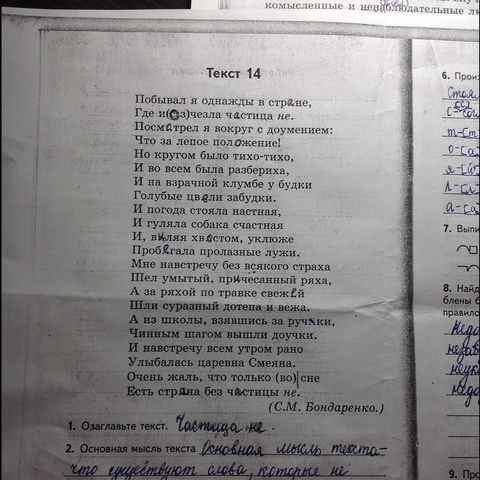 комысленные и ненаблюдательные
Текст 14
Побывал я однажды в стране,
Где и(с/з)чезла частица не.
Посмотрел я вокруг с доумением:
Что за лепое положение!
Но кругом было тихо-тихо,
И во всем была разбериха,
И на взрачной клумбе у будки
Голубые цвели забудки.
И погода стояла настная,
И гуляла собака счастная
И, виляя хвостом, уклюже
Пробегала пролазные лужи.
Мне навстречу без всякого страха
Шел умытый, причесанный ряха,
А за ряхой по травке свежей
Шли суразный дотепа и вежа.
А из школы, взявшись за ручки,
Чинным шагом вышли доучки.
И навстречу всем утром рано
Улыбалась царевна Смеяна.
Очень жаль, что только (во) сне
Есть страна без частицы не.
(С.М. Бондаренко.)
1. Озаглавьте текст. Частица не.
2. Основная мысль текста Основная мысль текста-
что существуют слова, которые не
6. Прои
7. Выпи
8. Найд
блены б
правило
9. Про